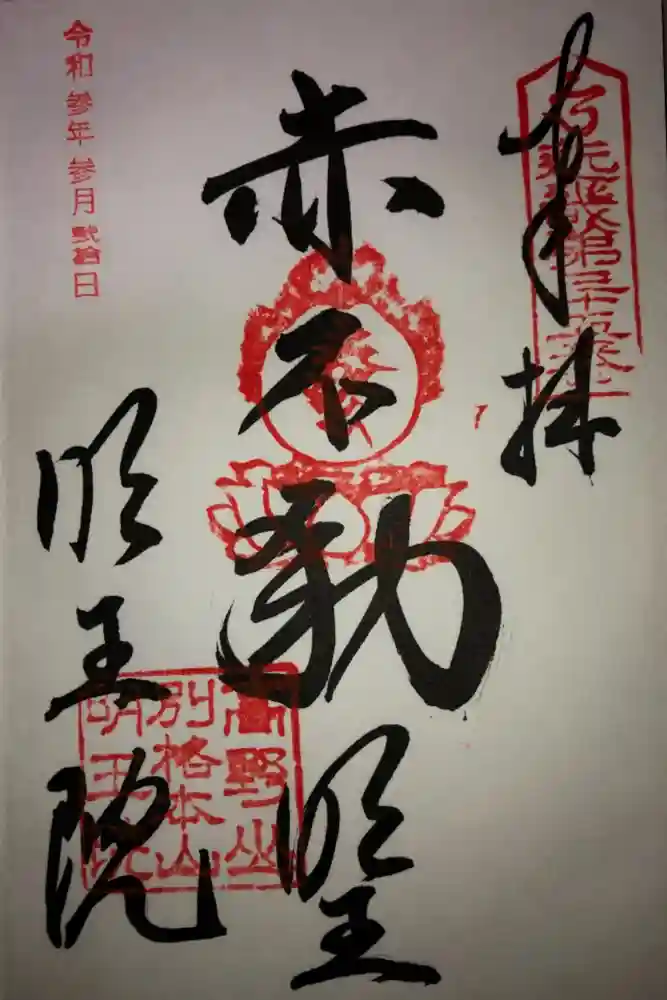 奉拝
赤不動明王
高野山
別格本山
明王院
明王院
令和参年参月弐拾日